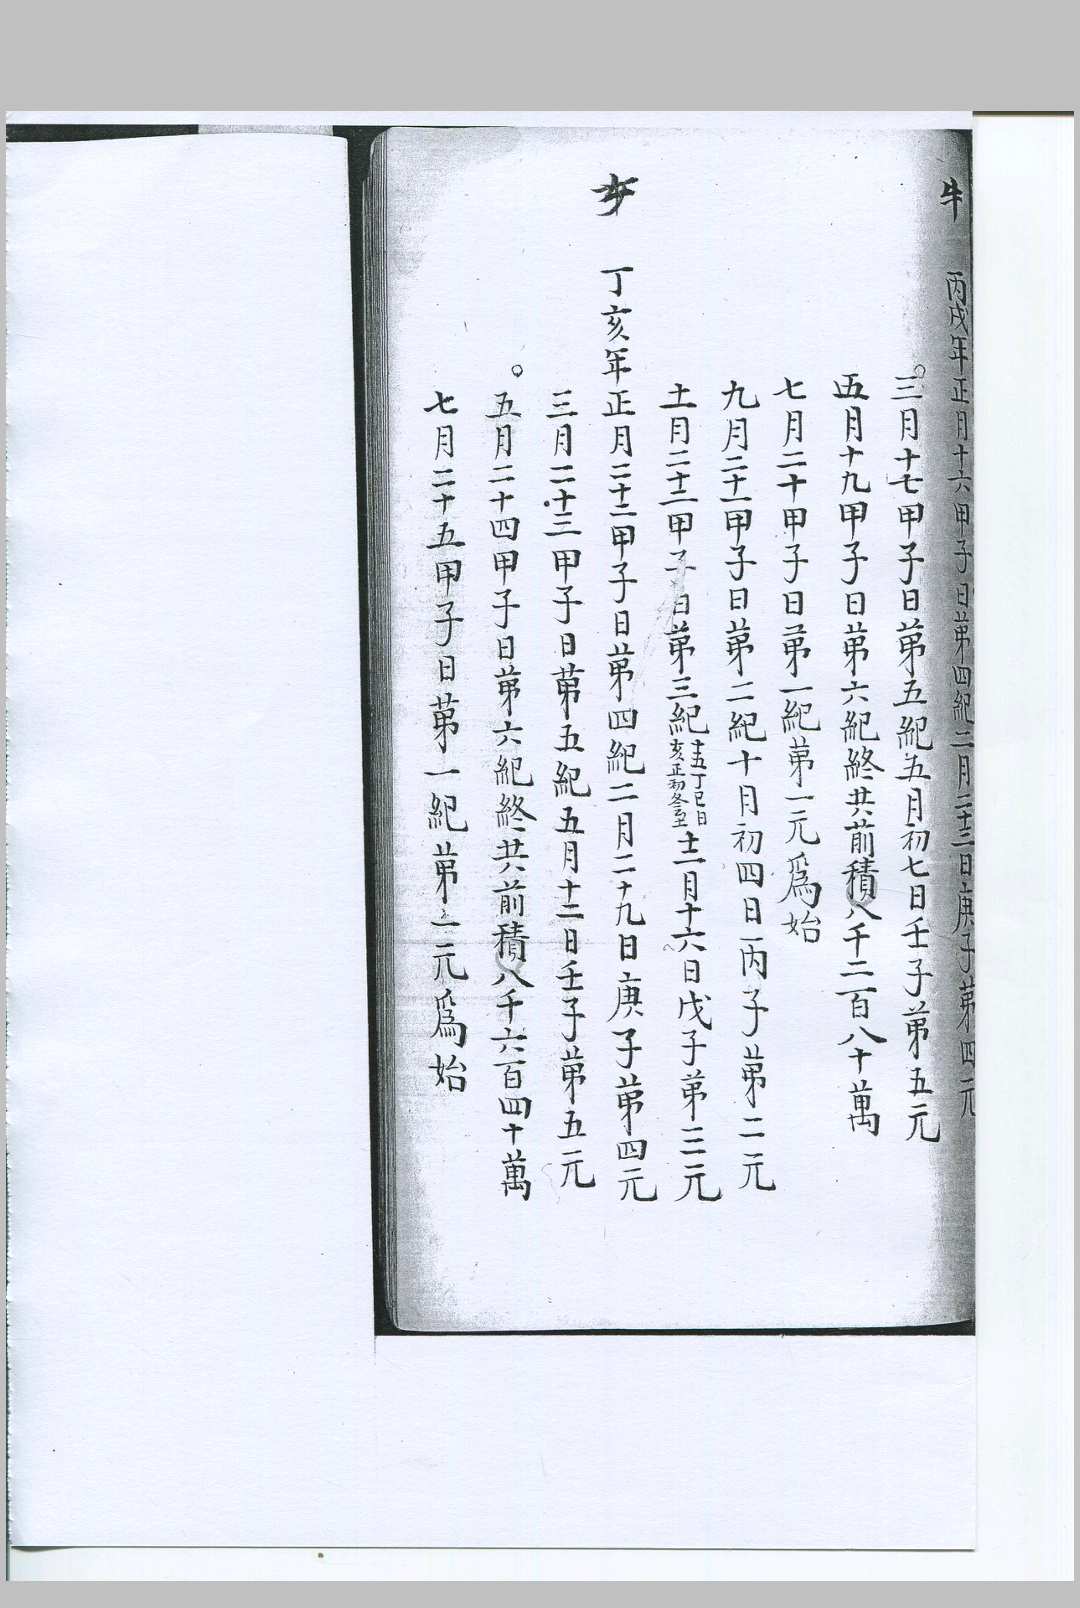 牛　丙戌年正月十六甲子日第四紀二月二十三日庚子第四元
三月十七甲子日第五紀五月初七日壬子第五元
五月十九甲子日第六紀終共前積八千二百八十萬
七月二十甲子日第一紀第一元爲始
九月二十一甲子日第二紀十月初四日丙子第二元
十一月二十二甲子日第三紀十一月十五丁巳日亥正初冬至十二月十六日戊子第三元
丁亥年正月二十二甲子日第四紀二月二十九日庚子第四元
三月二十三甲子日第五紀五月十二日壬子第五元
五月二十四甲子日第六紀終共前積八千六百四十萬
七月二十五甲子日第一紀第一元爲始